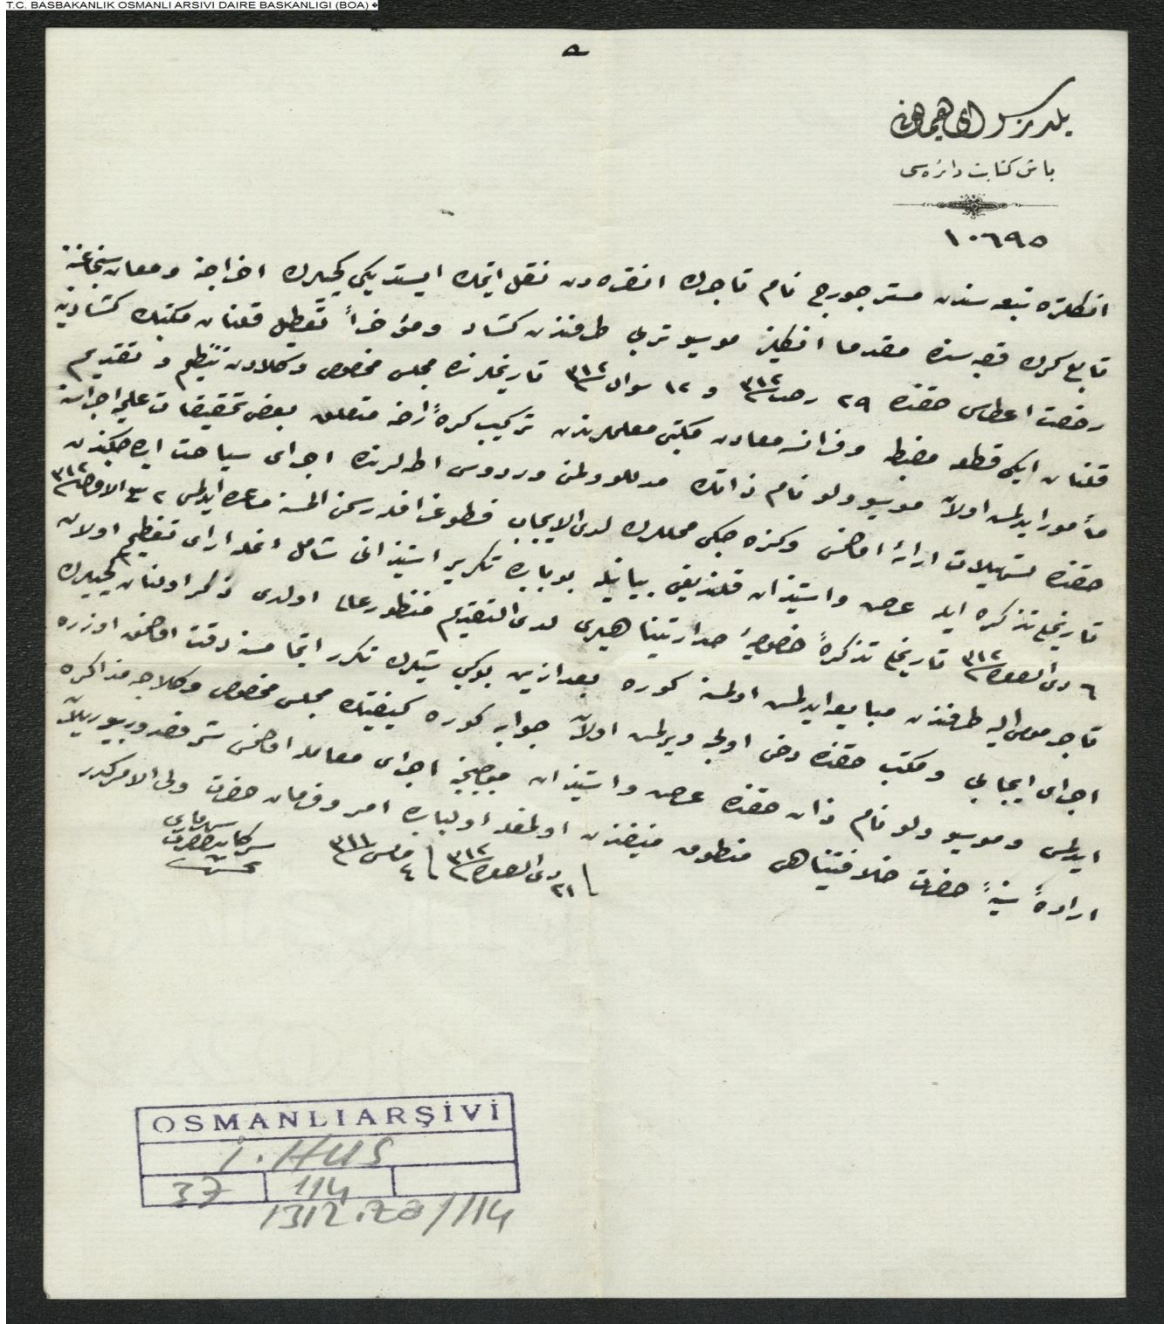 T.C. BASBAKANLIK OSMANLI ARSIVI DAIRE BASKANLIGI (BOA)
۵
يلديز سراى همايونى
باش كتابت دائره‌سى
١٠٦٩٥
انكلتره تبعه سندن مستر جورج نام تاجرك انقره دن نقل ايتمك ايستديكى كچيلرك اخراجنه ومعان سنجاغنه
تابع كرك قصبه سنده مقدما انكليز موسيو طرفندن كشاد ومؤخراً تعطيل قلنان مكتبك كشادينه
رخصت اعطاسى حقنده ٢٩ رجب ٣١٢ و ١٢ شوال ٣١٢ تاريخلرنده مجلس مخصوص وكلادن تنظيم و تقديم
قلنان ايكى قطعه مضبطه وفرانسه معادن مكتبى معلملرندن تركيب كرهٔ ارضه متعلق بعض تحقيقات علميه اجراسنه
مأمور ايدلمش اولان موسيو ولو نام ذاتك مدللو وطن وردوس اطه لرنده اجراى سياحت ايده جكندن
حقنده تسهيلات ارائه اولنمسى وكزه جكى محللرك لدى الايجاب فطوغرافله رسمنى المسنه مساعده ايدلمسى ٢
تاريخلى تذكره ايله عرض واستيذان قلنديغى بيانيله بوبابده تكرير استيذانى شامل
٦ ذى القعده ٣١٢ تاريخلى تذكرهٔ خصوصيهٔ صدارتپناهيلرى لدى التقديم منظور عالى اولدى ذكر اولنان كچيلرك
تاجر مومى اليه طرفندن مبايعه ايدلمش اولمسنه كوره بعد ازين بوكبى شيلرك تكرر ايتمامسنه دقت اولنمق اوزره
اجراى ايجابى ومكتب حقنده دخى اولجه ويرلمش اولان جوابه كوره كيفيتك مجلس مخصوص وكلاجه مذاكره
ايدلمسى وموسيو ولو نام ذات حقنده عرض واستيذان موجبنجه اجراى معامله اولنمسى شرفصدور بيوريلان
ارادهٔ سنيهٔ حضرت خلافتپناهى منطوق منيفندن اولمغله اولبابده امر وفرمان حضرت ولى الامركدر
٢١ ذى القعده ٣١٢ ٤ مايس ٣١١
سر كاتب حضرت شهريارى
تحسين
OSMANLI ARŞİVİ
İ.HUS
37 114
1312.Za/114